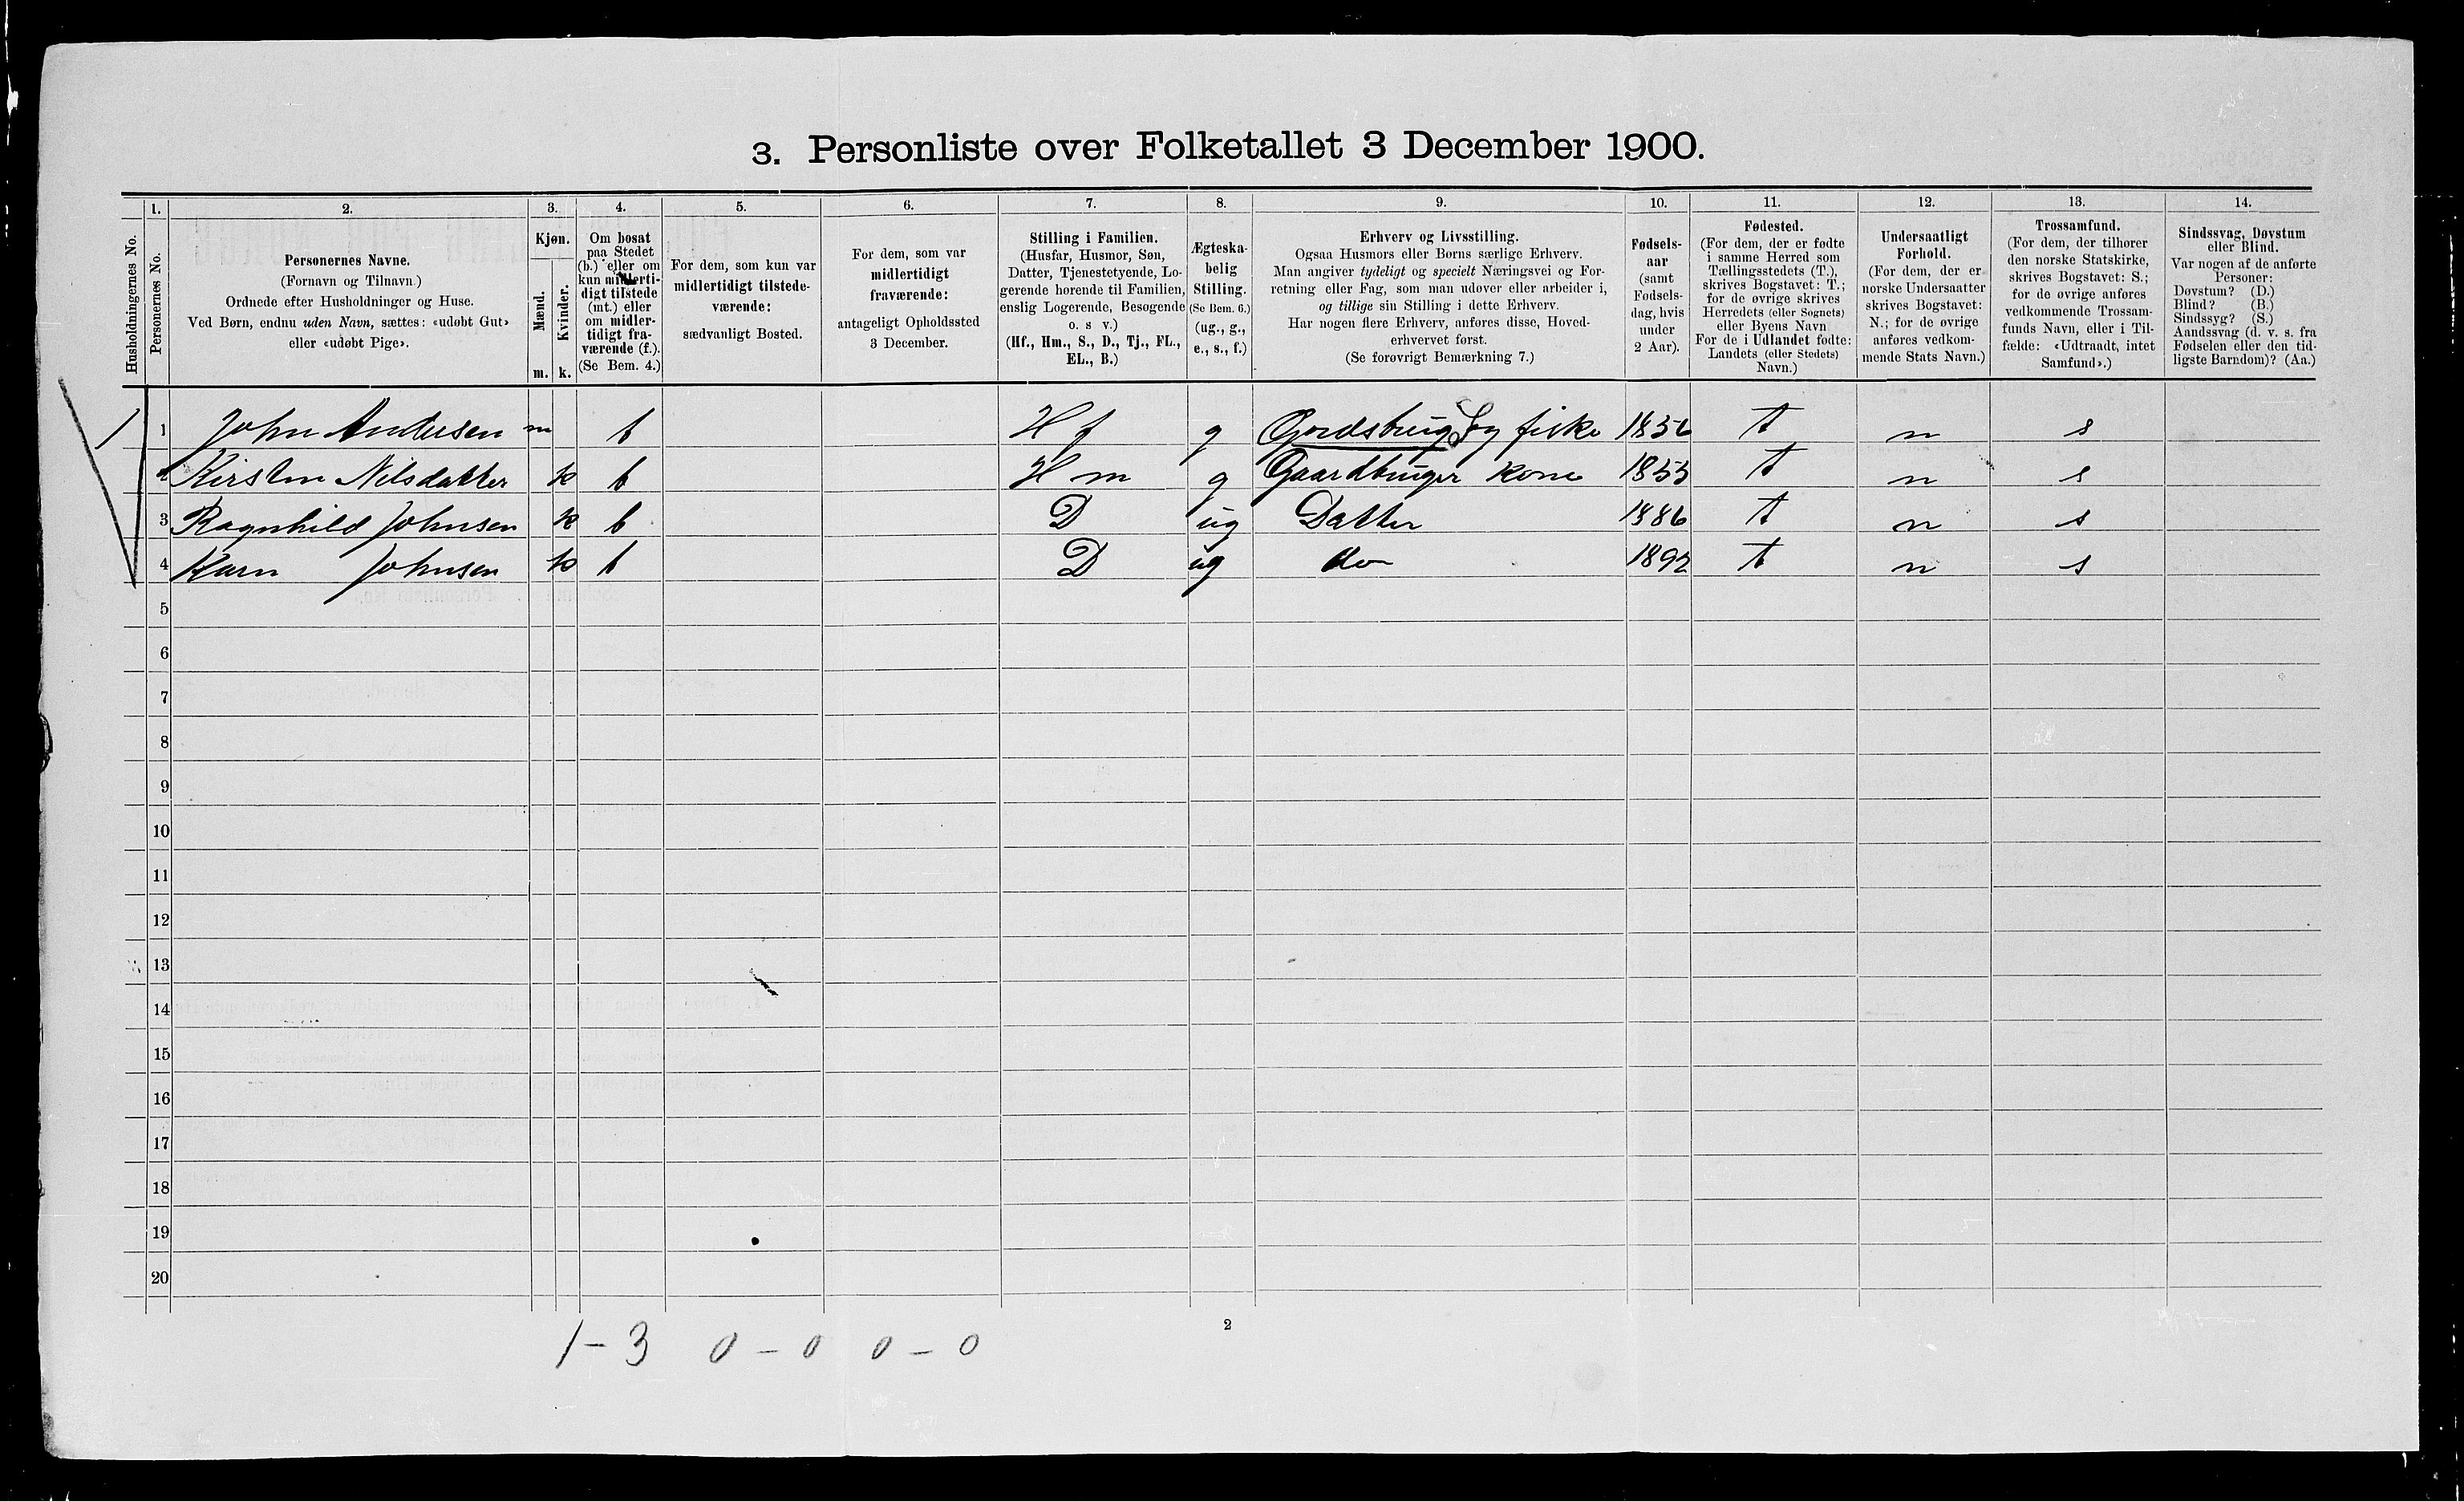 3. Personliste over Folketallet 3 December 1900.
1. 2. 3. 4. 5. 6. 7. 8. 9. 10. 11. 12. 13. 14.
Husholdningernes No.
Personernes No.
Personernes Navne.
(Fornavn og Tilnavn.)
Ordnede efter Husholdninger og Huse.
Ved Børn, endnu uden Navn, sættes: «udøbt Gut»
eller «udøbt Pige».
Kjøn.
Mænd.
Kvinder.
m. k.
Om bosat
paa Stedet
(b.) eller om
kun midlerti-
digt tilstede
(mt.) eller
om midler-
tidigt fra-
værende (f.).
(Se Bem. 4.)
For dem, som kun var
midlertidigt tilstede-
værende:
sædvanligt Bosted.
For dem, som var
midlertidigt
fraværende:
antageligt Opholdssted
3 December.
Stilling i Familien.
(Husfar, Husmor, Søn,
Datter, Tjenestetyende, Lo-
gerende hørende til Familien,
enslig Logerende, Besøgende
o. s v.)
(Hf., Hm., S., D., Tj., FL.,
EL., B.)
Ægteska-
belig
Stilling.
(Se Bem. 6.)
(ug., g.,
e., s., f.)
Erhverv og Livsstilling.
Ogsaa Husmors eller Børns særlige Erhverv.
Man angiver tydeligt og specielt Næringsvei og For-
retning eller Fag, som man udøver eller arbeider i,
og tillige sin Stilling i dette Erhverv.
Har nogen flere Erhverv, anføres disse, Hoved-
erhvervet først.
(Se forøvrigt Bemærkning 7.)
Fødsels-
aar
(samt
Fødsels-
dag, hvis
under
2 Aar).
Fødested.
(For dem, der er fødte
i samme Herred som
Tællingsstedets (T.),
skrives Bogstavet: T.;
for de øvrige skrives
Herredets (eller Sognets)
eller Byens Navn
For de i Udlandet fødte:
Landets (eller Stedets)
Navn.)
Undersaatligt
Forhold.
(For dem, der er
norske Undersaatter
skrives Bogstavet:
N.; for de øvrige
anføres vedkom-
mende Stats Navn.)
Trossamfund.
(For dem, der tilhører
den norske Statskirke,
skrives Bogstavet: S.;
for de øvrige anføres
vedkommende Trossam-
funds Navn, eller i Til-
fælde: «Udtraadt, intet
Samfund».)
Sindssvag, Døvstum
eller Blind.
Var nogen af de anførte
Personer:
Døvstum? (D.)
Blind? (B.)
Sindssyg? (S.)
Aandssvag (d. v. s. fra
Fødselen eller den tid-
ligste Barndom)? (Aa.)
1 1 John Andersen m b Hf g fiske t n s
Kirsten Nilsdatter k b Hm g Gaardbruger Kone 1853 t n s
3 Ragnhild Johnsen k b D ug Datter 1886 t n s
4 Karn Johnsen k b D ug do 1892 t n s
5
6
7
8
9
10
11
12
13
14
15
16
17
18
19
20
2
1 - 3 0 - 0 0 - 0